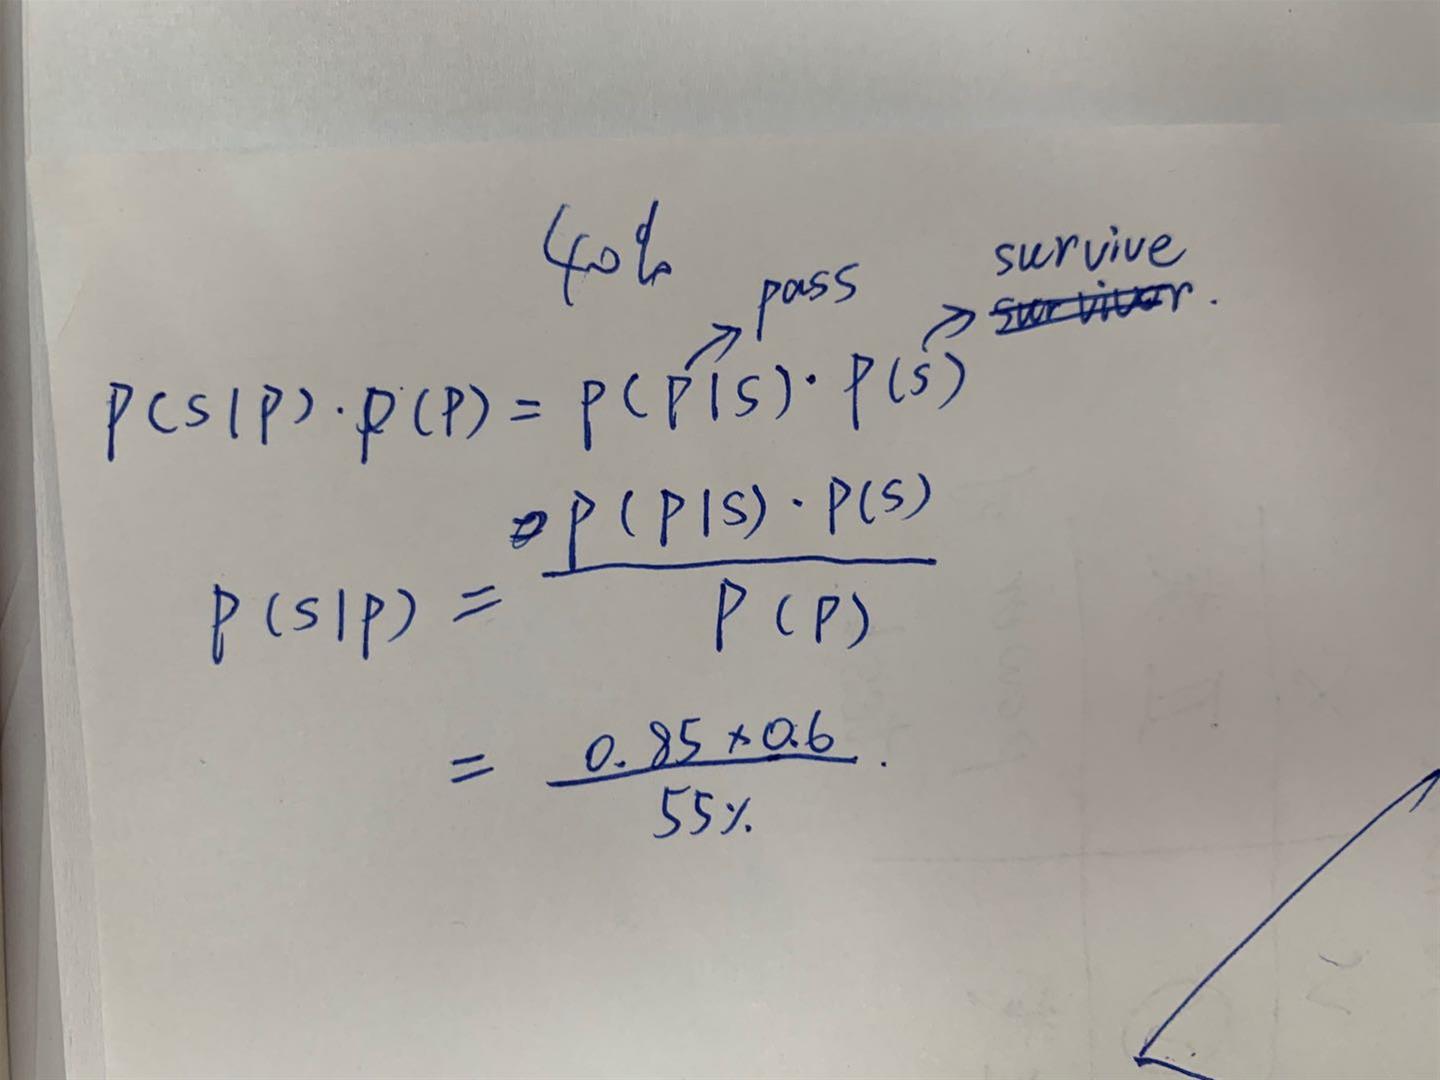 40%
pass
survive
survivor.
P(S|P)·P(P) = P(P|S)·P(S)
P(P|S)·P(S)
P(S|P) =
P(P)
= 0.85×0.6
55%.